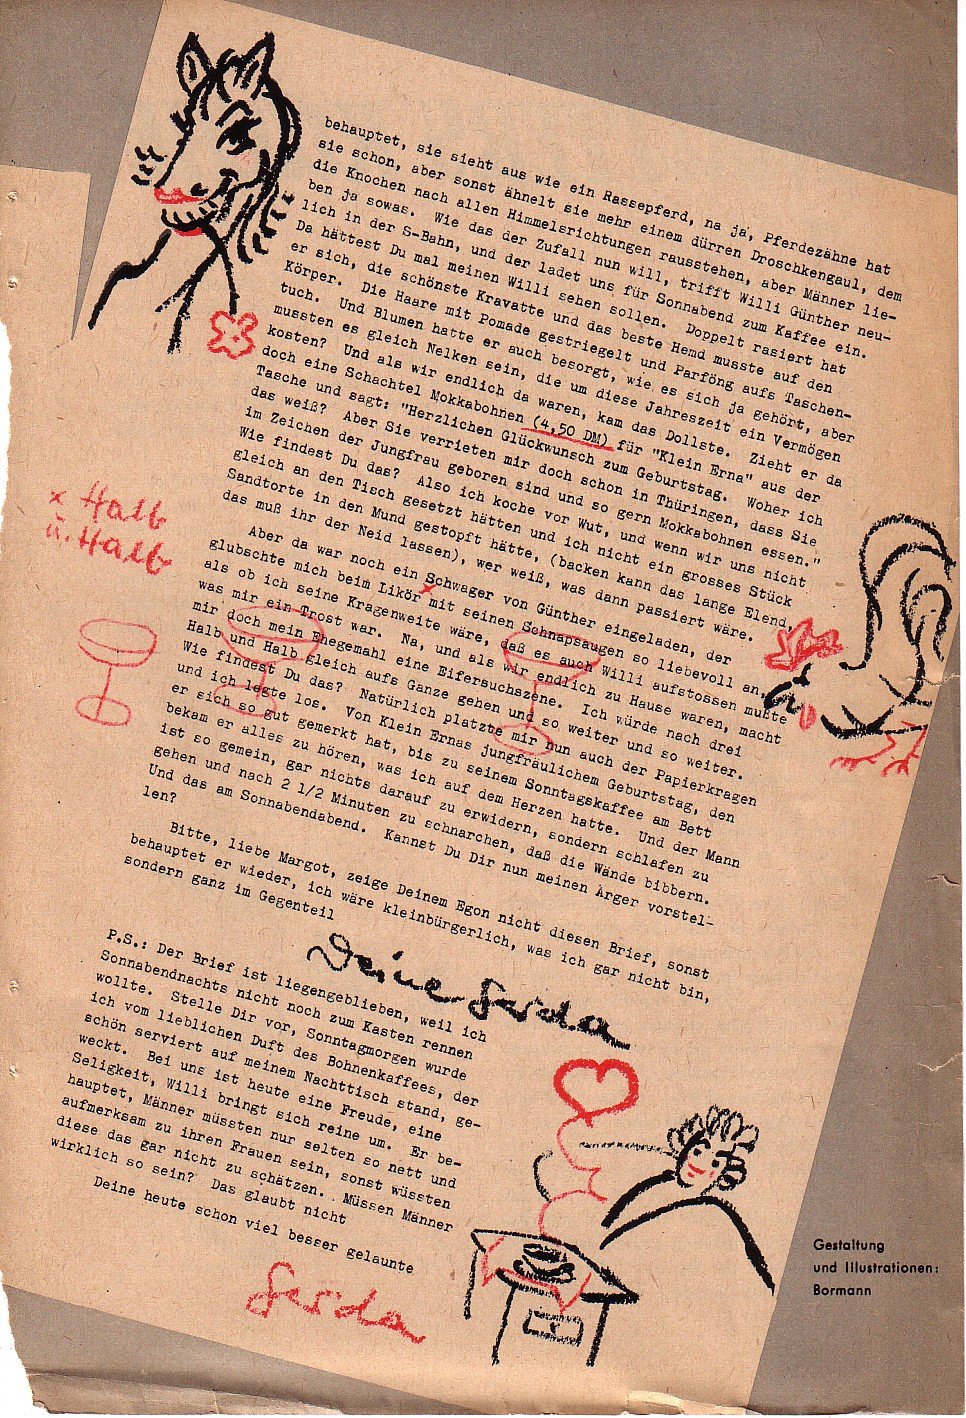 behauptet, sie sieht aus wie ein Rassepferd, na ja, Pferdezähne hat
sie schon, aber sonst ähnelt sie mehr einem dürren Droschkengaul, dem
die Knochen nach allen Himmelsrichtungen rausstehen, aber Männer lie-
ben ja sowas. Wie das der Zufall nun will, trifft Willi Günther neu-
lich in der S-Bahn, und der ladet uns für Sonnabend zum Kaffee ein.
Da hättest Du mal meinen Willi sehen sollen. Doppelt rasiert hat
er sich, die schönste Kravatte und das beste Hemd musste auf den
Körper. Die Haare mit Pomade gestriegelt und Parföng aufs Taschen-
tuch. Und Blumen hatte er auch besorgt, wie es sich ja gehört, aber
mussten es gleich Nelken sein, die um diese Jahreszeit ein Vermögen
kosten? Und als wir endlich da waren, kam das Dollste. Zieht er da
doch eine Schachtel Mokkabohnen (4,50 DM) für "Klein Erna" aus der
Tasche und sagt: "Herzlichen Glückwunsch zum Geburtstag. Woher ich
das weiß? Aber Sie verrieten mir doch schon in Thüringen, dass Sie
im Zeichen der Jungfrau geboren sind und so gern Mokkabohnen essen."
Wie findest Du das? Also ich koche vor Wut, und wenn wir uns nicht
gleich an den Tisch gesetzt hätten und ich nicht ein grosses Stück
Sandtorte in den Mund gestopft hätte, (backen kann das lange Elend,
das muß ihr der Neid lassen), wer weiß, was dann passiert wäre.
x Halb
u. Halb
Aber da war noch ein Schwager von Günther eingeladen, der
glubschte mich beim Likör x mit seinen Schnapsaugen so liebevoll an,
als ob ich seine Kragenweite wäre, daß es auch Willi aufstossen mußte
was mir ein Trost war. Na, und als wir endlich zu Hause waren, macht
mir doch mein Ehegemahl eine Eifersuchszene. Ich würde nach drei
Halb und Halb gleich aufs Ganze gehen und so weiter und so weiter.
Wie findest Du das? Natürlich platzte mir nun auch der Papierkragen
und ich legte los. Von Klein Ernas jungfräulichem Geburtstag, den
er sich so gut gemerkt hat, bis zu seinem Sonntagskaffee am Bett
bekam er alles zu hören, was ich auf dem Herzen hatte. Und der Mann
ist so gemein, gar nichts darauf zu erwidern, sondern schlafen zu
gehen und nach 2 1/2 Minuten zu schnarchen, daß die Wände bibbern.
Und das am Sonnabendabend. Kannst Du Dir nun meinen Ärger vorstel-
len?
Bitte, liebe Margot, zeige Deinem Egon nicht diesen Brief, sonst
behauptet er wieder, ich wäre kleinbürgerlich, was ich gar nicht bin,
sondern ganz im Gegenteil
Deine Gerda
P.S.: Der Brief ist liegengeblieben, weil ich
Sonnabendnachts nicht noch zum Kasten rennen
wollte. Stelle Dir vor, Sonntagmorgen wurde
ich vom lieblichen Duft des Bohnenkaffees, der
schön serviert auf meinem Nachttisch stand, ge-
weckt. Bei uns ist heute eine Freude, eine
Seligkeit, Willi bringt sich reine um. Er be-
hauptet, Männer müssten nur selten so nett und
aufmerksam zu ihren Frauen sein, sonst wüssten
diese das gar nicht zu schätzen. Müssen Männer
wirklich so sein? Das glaubt nicht
Deine heute schon viel besser gelaunte
Gerda
Gestaltung
und Illustrationen:
Bormann